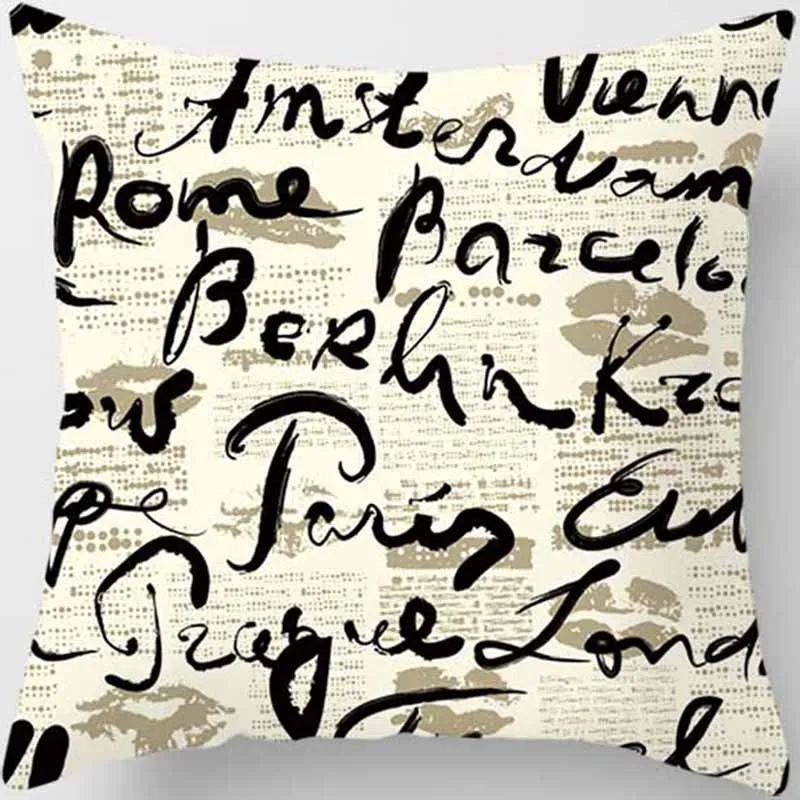 Amsterdam
Vienn
Rome
Barcelo
Berlin
Kra
ow
Paris
Eu
pe
Prague
Lond